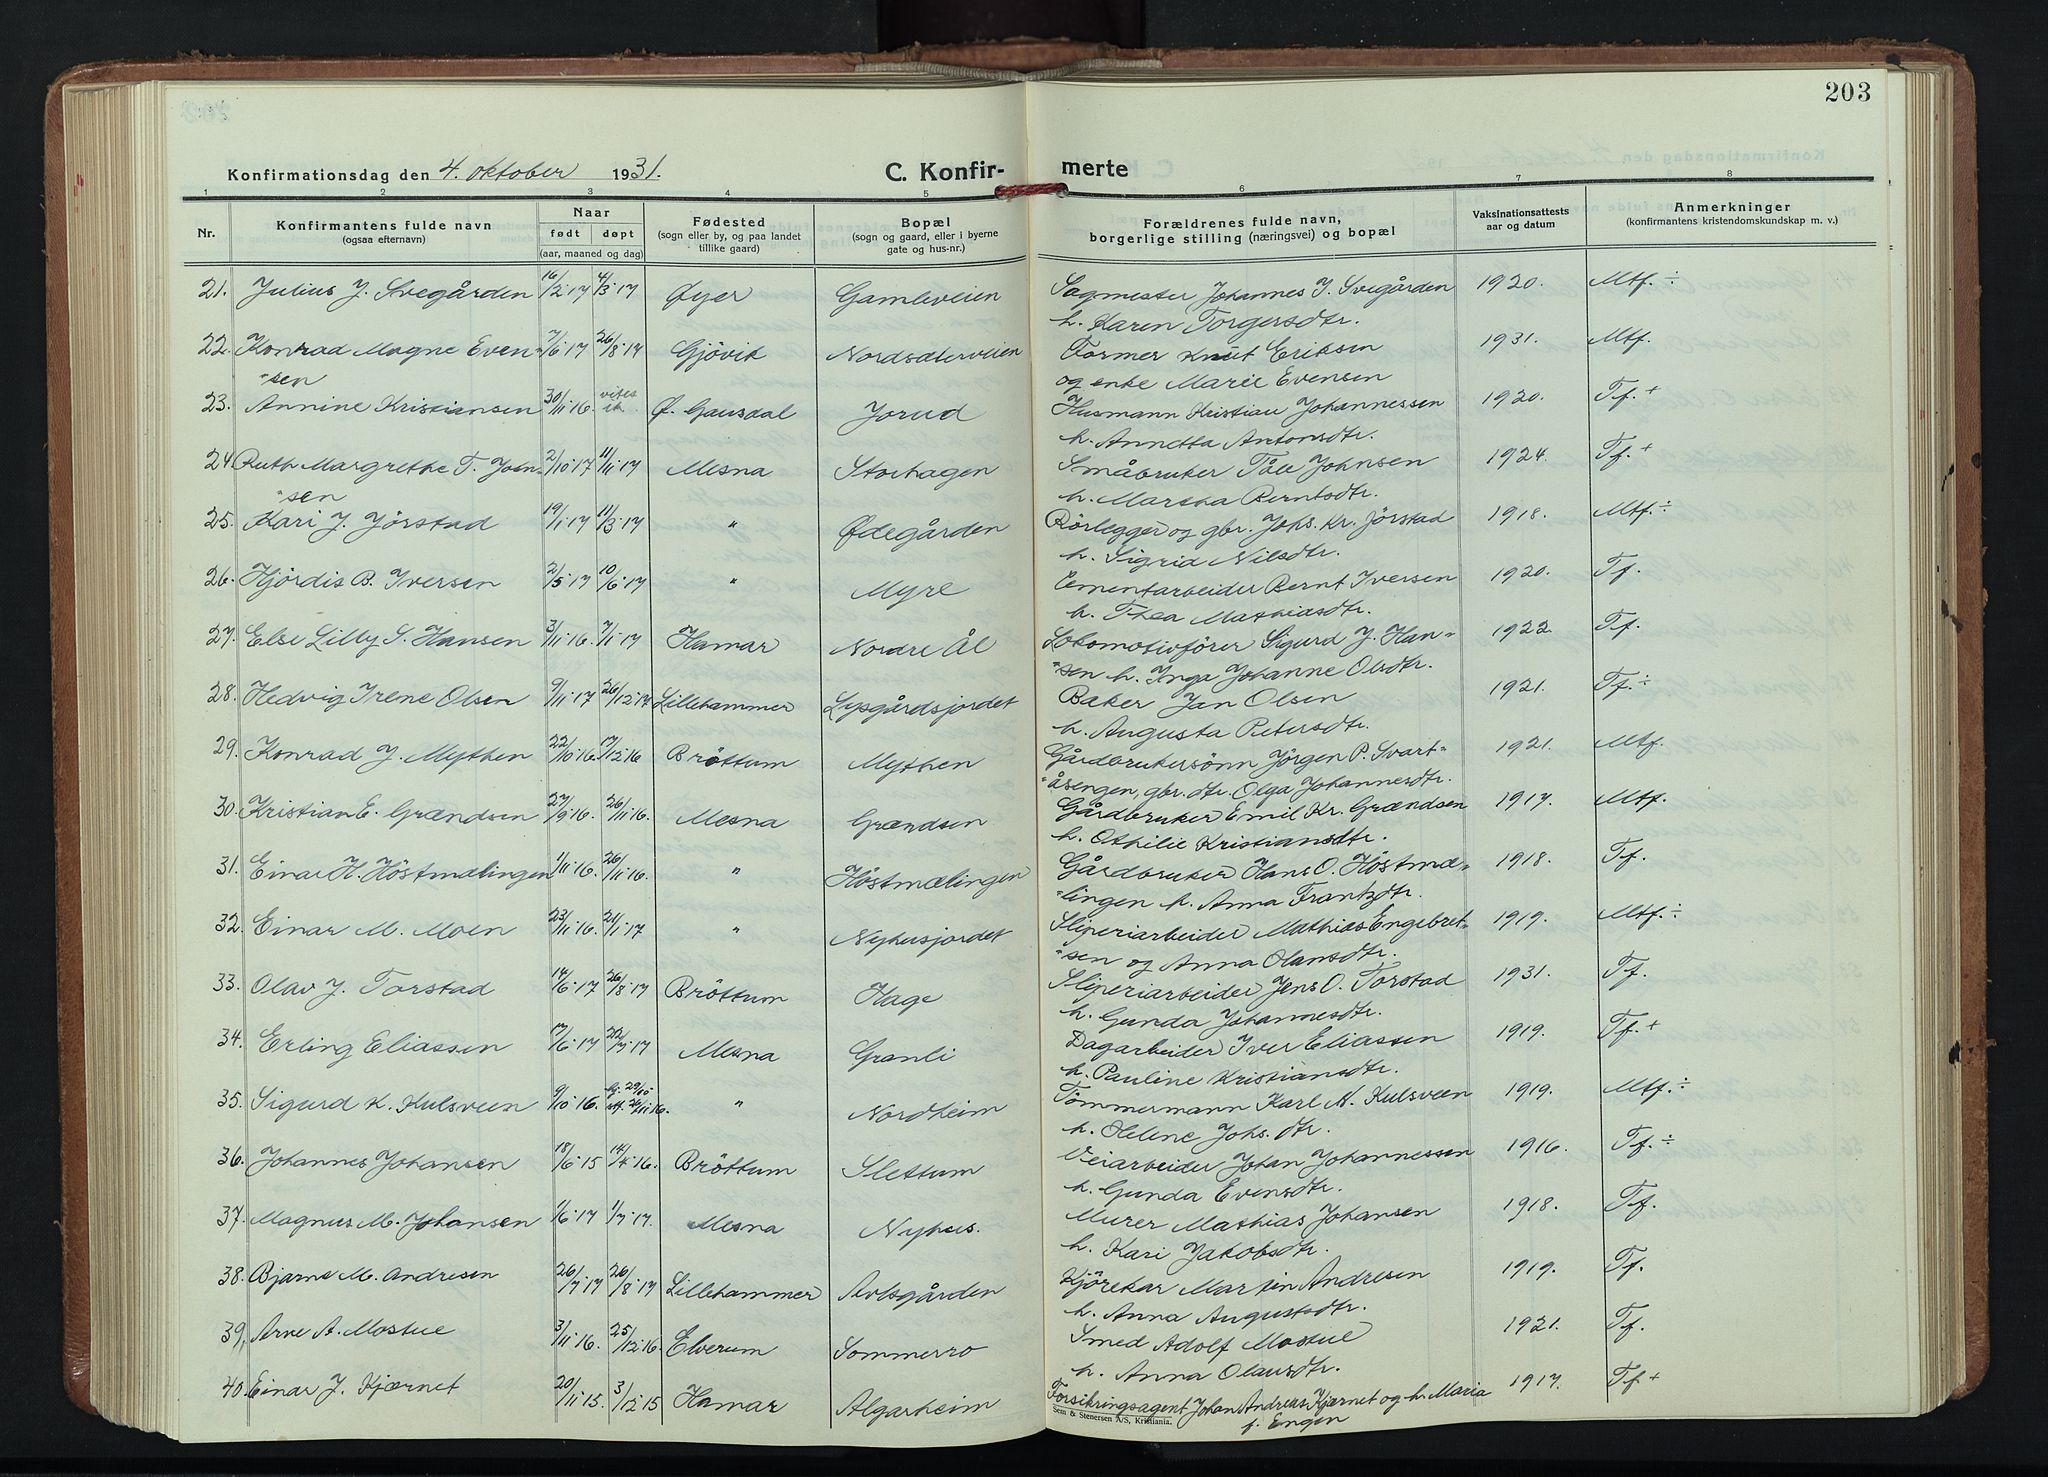 203
Konfirmationsdag den 4. oktober 1931. C. Konfir- merte
1 2 3 4 5 6 7 8
Nr. Konfirmantens fulde navn Naar Fødested Bopæl Forældrenes fulde navn, Vaksinationsattests Anmerkninger
(ogsaa efternavn) født døpt (sogn eller by, og paa landet (sogn og gaard, eller i byerne borgerlige stilling (næringsvei) og bopæl aar og datum (konfirmantens kristendomskundskap m. v.)
(aar, maaned og dag) tillike gaard) gate og hus-nr.)
21. Julius J. Svegården 16/2·17 4/3·17 Øyer Gamleveien Sagmester Johannes J. Svegården 1920. Mtf. ÷
h. Karen Torgersdtr.
22. Konrad Magne Even- 7/6·17 26/8·17 Gjövik Nordsæterveien Former Knut Eriksen 1931. Mtf.
"sen og enke Marie Evensen
23. Annine Kristiansen 30/11·16. Ø. Gausdal Jorud Husmann Kristian Johannessen 1920. Tf. +
h. Annetta Antonsdtr.
24. Ruth Margrethe T. John- 2/10·17 11/11·17 Mesna Storhagen Småbruker Tåle Johnsen 1924. Tf. +
"sen h. Martha Berntsdtr.
25. Kari J. Jörstad 19/1·17 11/3·17 " Ødegården Rörlegger og gbr. Johs. Kr. Jörstad 1918. Mtf. ÷
h. Sigrid Nilsdtr.
26. Hjördis B. Iversen 2/5·17 10/6·17 " Myre Cementarbeider Bernt Iversen 1920. Tf.
h. Thea Mathiasdtr.
27. Else Lilly S. Hansen 3/11·16. 7/1·17 Hamar Nordre Ål Lokomotivförer Sigurd J. Han- 1922. Tf.
"sen h. Inga Johanne Olsdtr.
28. Hedvig Irene Olsen 9/11·17 26/12·17 Lillehammer Lysgårdsjordet Baker Jan Olsen 1921. Tf. ÷
h. Augusta Petersdtr.
29. Konrad J. Mythen 22/10·16. 17/12·16 Bröttum Mythen Gårdbrukersönn Jörgen P. Svart- 1921. Mtf.
"åsengen, gbr. dtr. Olga Johannesdtr.
30. Kristian E. Grændsen 27/9·16. 26/11·16. Mesna Grændsen Gårdbruker Emil Kr. Grændsen 1917. Mtf.
h. Othilie Kristiansdtr.
31. Einar H. Höstmælingen 1/11·16. 26/11·16. " Höstmælingen Gårdbruker Hans O. Höstmæ- 1918. Tf.
"lingen h. Anna Frantzdtr.
32. Einar M. Moen 23/11·16. 21/1·17 " Nyhusjordet Sliperiarbeider Mathias Engebret- 1919. Mtf. ÷
"sen og Anna Hansdtr.
33. Olav J. Torstad 14/6·17 26/8·17 Bröttum Hage Sliperiarbeider Jens O. Torstad 1931. Tf.
h. Gunda Johannesdtr.
34. Erling Eliassen 17/6·17 22/7·17 Mesna Granli Dagarbeider Iver Eliassen 1919. Tf. +
h. Pauline Kristiansdtr.
35. Sigurd K. Kulsveen 9/10·16. hj. 29/10 stf. 26/11·16. " Nordheim Tömmermann Karl M. Kulsveen 1919. Mtf. ÷
h. Helene Johs. dtr.
36. Johannes Johansen 18/6·15 14/4·16. Bröttum Slettum Veiarbeider Johan Johannessen 1916. Tf. ÷
h. Gunda Evensdtr.
37. Magnus M. Johansen 1/6·17 1/7·17. Mesna Nyhus. Murer Mathias Johansen 1918. Tf.
h. Kari Jakobsdtr.
38. Bjarne M. Andresen 26/7·17 26/8·17 Lillehammer Avlsgården Kjörekar Martin Andresen 1919. Tf.
h. Anna Augustsdtr.
39. Arne A. Mostue 3/11·16. 25/12·16. Elverum Sommerro Smed Adolf Mostue 1921. Tf.
h. Anna Olausdtr.
40. Einar J. Kjærnet 20/11·15. 3/12·15 Hamar Algarheim Forsikringsagent Johan Andreas Kjærnet og h. Maria 1917. Tf +
f. Engen
Sem & Stenersen A/S, Kristiania.